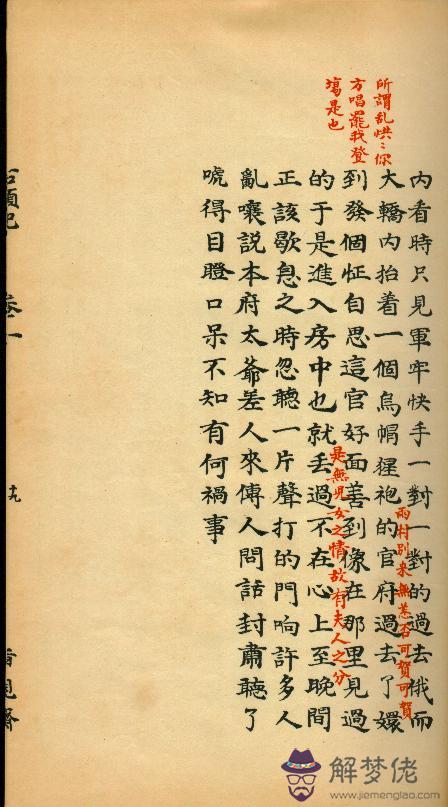 所謂乱烘〻你
方唱罷我登
場是也
内看時只見軍牢快手一對一對的過去俄而
雨村別來無恙否可賀可賀
大轎内抬着一個烏帽猩袍的官府過去了嬛
到發個怔自思這官好面善到像在那里見過
是無兒女之情故有夫人之分
的于是進入房中也就丢過不在心上至晚間
正該歇息之時忽聽一片聲打的門响許多人
亂嚷説本府太爺差人來傳人問話封肅聽了
唬得目瞪口呆不知有何禍事
石頭記
卷一
十九
脂硯齋
解梦佬
www.jiemenglao.com